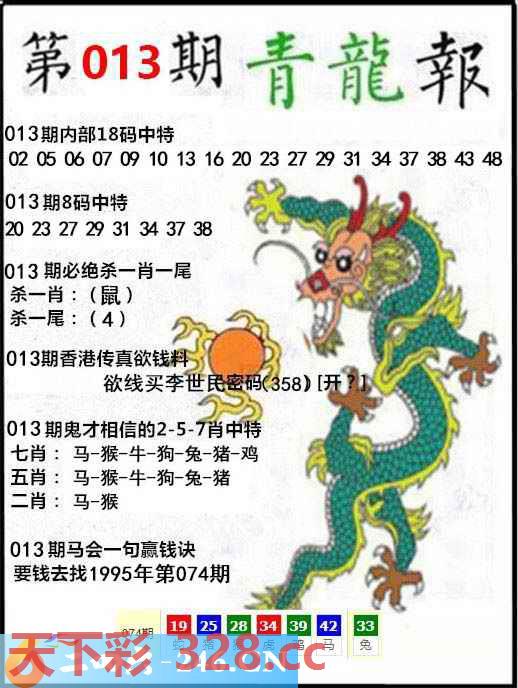 第013期青龍報
013期内部18码中特
02 05 06 07 09 10 13 16 20 23 27 29 31 34 37 38 43 48
013期8码中特
20 23 27 29 31 34 37 38
013期必绝杀一肖一尾
杀一肖：(鼠)
杀一尾：(4)
013期香港传真欲钱料
欲线买李世民密码(358)[开？]
013期鬼才相信的2-5-7肖中特
七肖： 马-猴-牛-狗-兔-猪-鸡
五肖： 马-猴-牛-狗-兔-猪
二肖： 马-猴
013期马会一句赢钱诀
要钱去找1995年第074期
074期 19 25 28 34 39 42 33
蛇 猪 虎 鸡 马 兔
天下彩-328.cc